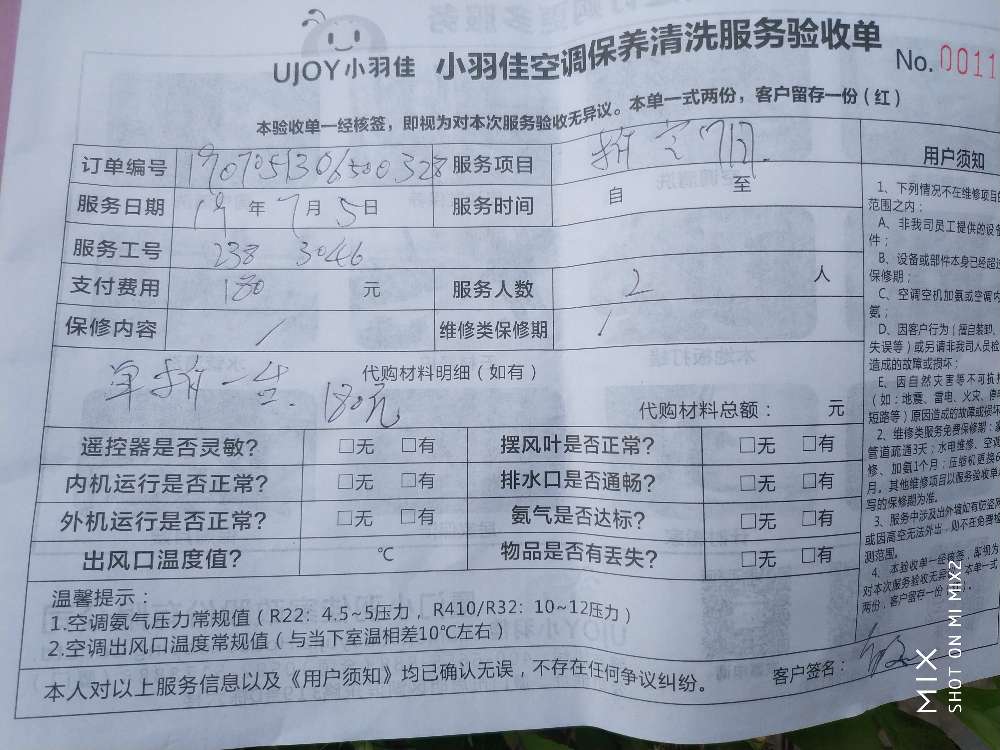 UJOY小羽佳 小羽佳空调保养清洗服务验收单
No. 0011
本验收单一经核签，即视为对本次服务验收无异议。本单一式两份，客户留存一份（红）
订单编号 1907051306500328 服务项目
服务日期 19 年 7 月 5 日 服务时间 自 至
服务工号 238 3046
支付费用 180 元 服务人数 2 人
保修内容 / 维修类保修期 /
单拆一台 180元
代购材料明细（如有）
代购材料总额： 元
遥控器是否灵敏？ □无 □有 摆风叶是否正常？ □无 □有
内机运行是否正常？ □无 □有 排水口是否通畅？ □无 □有
外机运行是否正常？ □无 □有 氨气是否达标？ □无 □有
出风口温度值？ ℃ 物品是否有丢失？ □无 □有
温馨提示：
1.空调氨气压力常规值（R22：4.5~5压力，R410/R32：10~12压力）
2.空调出风口温度常规值（与当下室温相差10℃左右）
本人对以上服务信息以及《用户须知》均已确认无误，不存在任何争议纠纷。
客户签名：
用户须知
1、下列情况不在维修项目的
范围之内：
A、非我司员工提供的设备
件；
B、设备或部件本身已经超过
保修期；
C、空调空机加氨或空调内
氨；
D、因客户行为（擅自装卸、
失误等）或另请非我司人员检
造成的故障或损坏；
E、因自然灾害等不可抗拒
（如：地震、雷电、火灾、停电
短路等）原因造成的故障或损坏
2、维修类服务免费保修期：家
管道疏通3天；水电维修、空调
修、加氨1个月；压缩机更换6
月。其他维修项目以服务验收单
写的保修期为准。
3、服务中涉及出外墙如有防盗网
或因高空无法外出，则不在免费检
测范围。
4、本验收单一经核签，即视为
对本次服务验收无异议。本单一式
两份，客户留存一份
MIX
SHOT ON MI MIX2